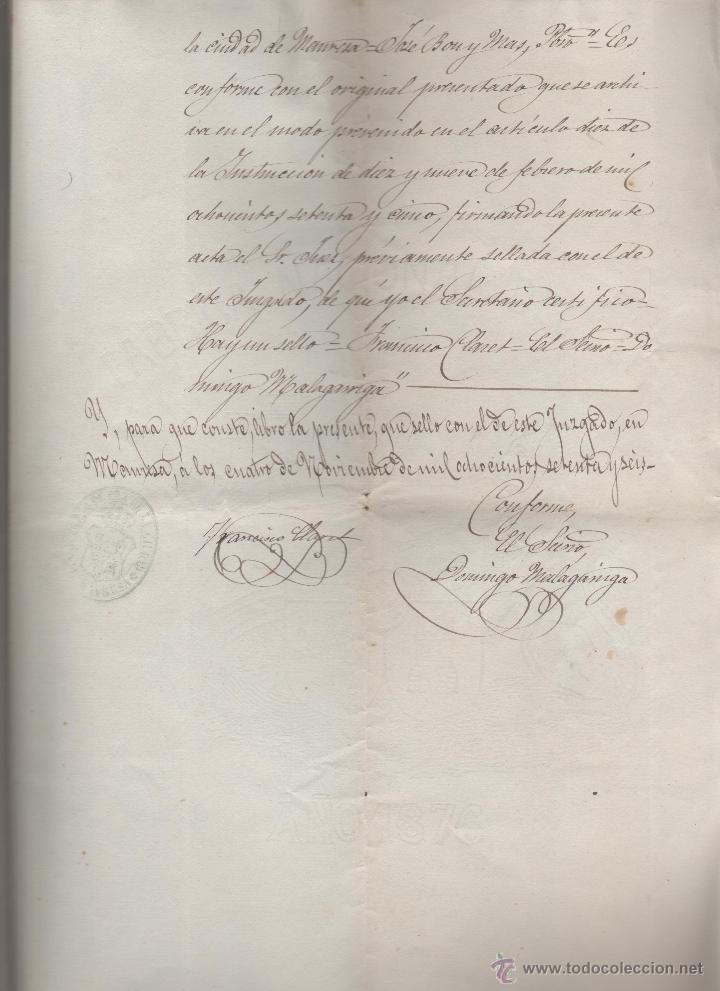 la ciudad de Manresa = José Bou y Mas, Pbro" = Es
conforme con el original presentado que se archi-
va en el modo prévenido en el artículo diez de
la Instruccion de diez y nueve de febrero de mil
ochocientos setenta y cinco, firmando la presente
acta el Sr. Juez, préviamente sellada con el de
este Juzgado, de que yo el Secretario certifico =
Hay un sello = Francisco Claret = El Srio = Do
mingo Malagarriga"
Y, para que conste, libro la presente, que sello con el de este Juzgado, en
Manresa, a los cuatro de Noviembre de mil ochocientos setenta y seis =
Conforme,
Francisco Claret
El Srio,
Domingo Malagarriga
AÑO 1876
www.todocoleccion.net